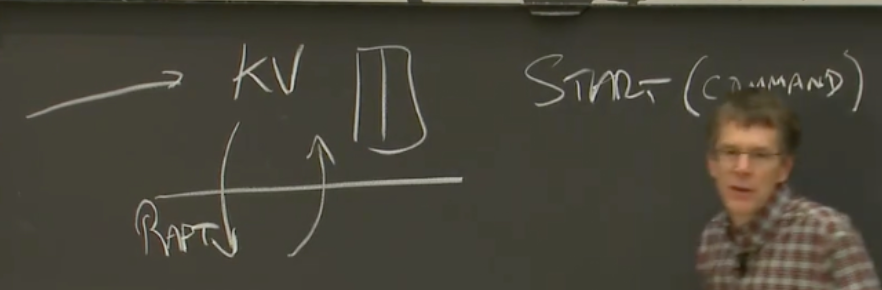 KV
START (COMMAND)
RAFT